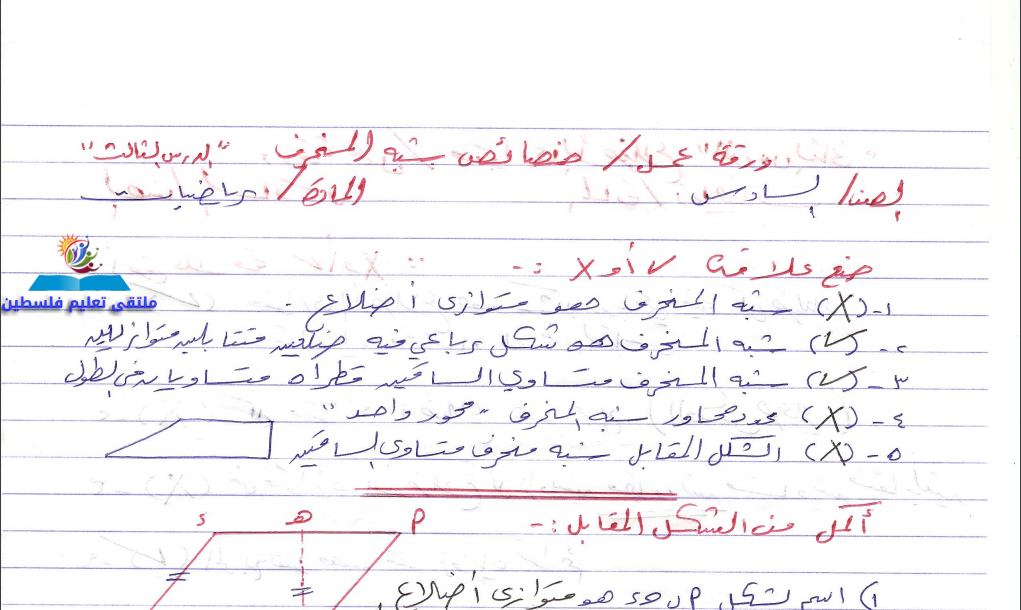 ورقة عمل / خصائص شبه المنحرف "الدرس الثالث"
الصف / السادس. المادة / رياضيات
ملتقى تعليم فلسطين
ضع علامة ✓ أو X :-
١- (X) شبه المنحرف هو متوازي أضلاع.
٢- (✓) شبه المنحرف هو شكل رباعي فيه ضلعين متقابلين متوازيين
٣- (✓) شبه المنحرف متساوي الساقين قطراه متساويان في الطول
٤- (X) عدد محاور شبه المنحرف "محور واحد"
٥- (X) الشكل المقابل شبه منحرف متساوي الساقين
أكمل من الشكل المقابل :-
م هـ ء
١) اسم الشكل هو متوازي أضلاع.